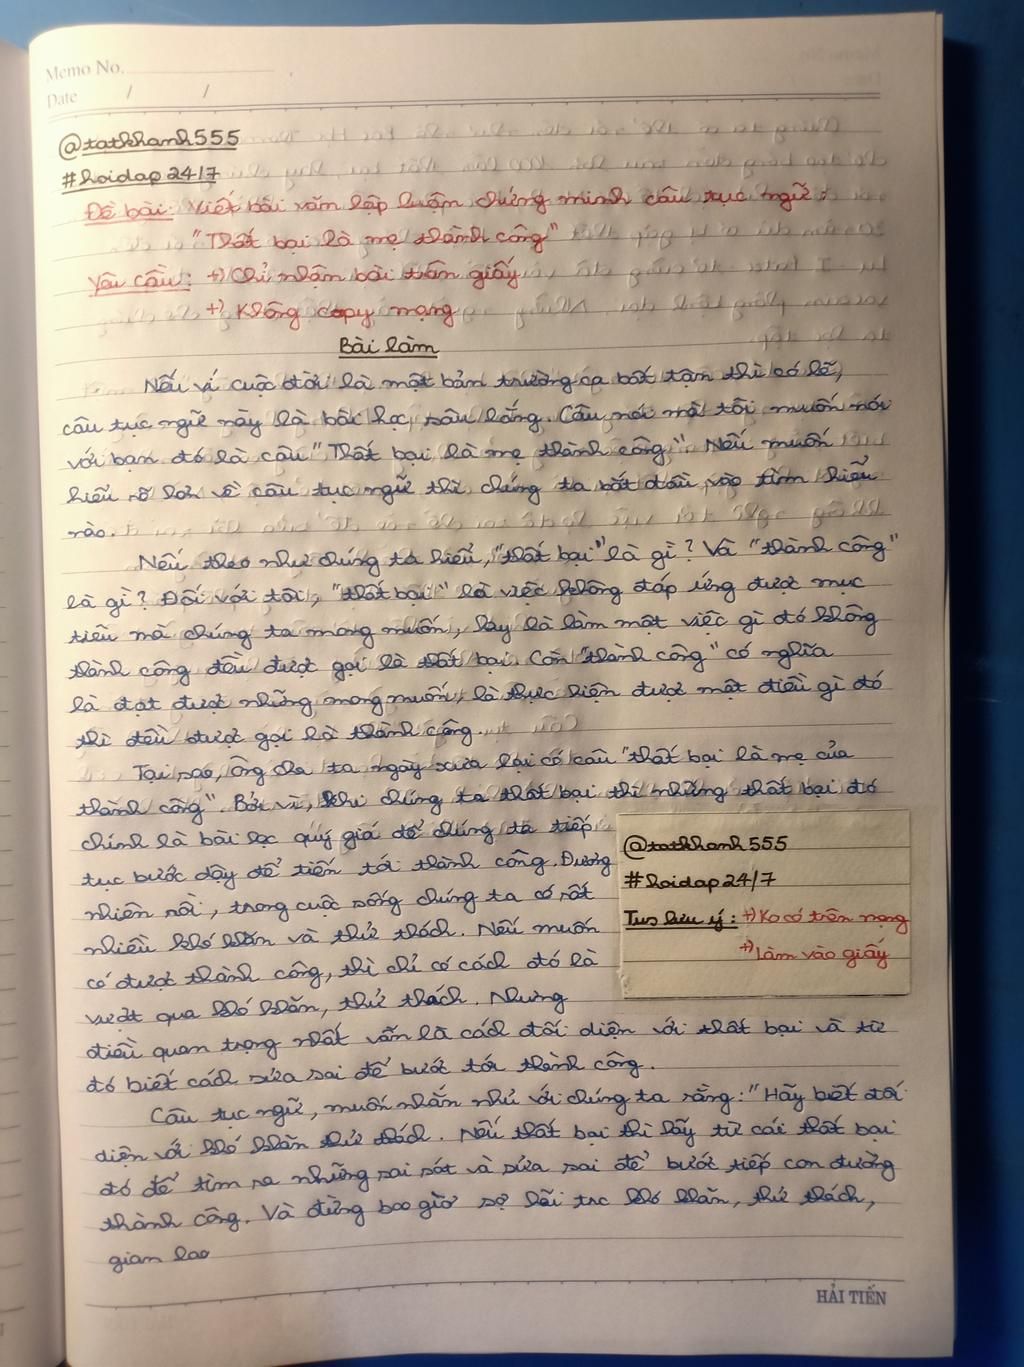 Memo No.
Date / /
@tatkhanh555
#hoidap24/7
Đề bài: Viết bài văn lập luận chứng minh câu tục ngữ:
"Thất bại là mẹ thành công"
Yêu cầu: +) Chỉ nhận bài trên giấy
+) Không copy mạng
Bài làm
Nếu ví cuộc đời là một bản trường ca bất tận thì có lẽ,
câu tục ngữ này là bài học sâu lắng. Câu nói mà tôi muốn nói
với bạn đó là câu "Thất bại là mẹ thành công" Nếu muốn
hiểu rõ hơn về câu tục ngữ thì chúng ta bắt đầu vào tìm hiểu
nào.
Nếu theo như chúng ta hiểu, "thất bại" là gì? Và "thành công"
là gì? Đối với tôi, "thất bại" là việc không đáp ứng được mục
tiêu mà chúng ta mong muốn, hay là làm một việc gì đó không
thành công đều được gọi là thất bại. Còn "thành công" có nghĩa
là đạt được những mong muốn, là thực hiện được một điều gì đó
thì đều được gọi là thành công.
Tại sao, ông cha ta ngày xưa lại có câu "thất bại là mẹ của
thành công". Bởi vì, khi chúng ta thất bại thì những thất bại đó
chính là bài học quý giá để chúng ta tiếp
tục bước dậy để tiến tới thành công. Đương
nhiên rồi, trong cuộc sống chúng ta có rất
nhiều khó khăn và thử thách. Nếu muốn
có được thành công, thì chỉ có cách đó là
vượt qua khó khăn, thử thách. Nhưng
điều quan trọng nhất vẫn là cách đối diện với thất bại và từ
đó biết cách sửa sai để bước tới thành công.
Câu tục ngữ, muốn nhắn nhủ với chúng ta rằng: "Hãy biết đối
diện với khó khăn thử thách. Nếu thất bại thì hãy từ cái thất bại
đó để tìm ra những sai sót và sửa sai để bước tiếp con đường
thành công. Và đừng bao giờ sợ hãi trc khó khăn, thử thách,
gian lao
@tatkhanh555
#hoidap24/7
Tus lưu ý: +) Ko có trên mạng
+) làm vào giấy
HẢI TIẾN